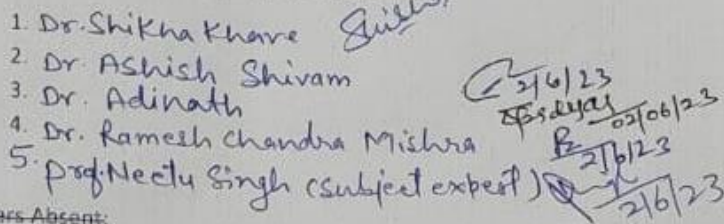 1. Dr. Shikha Khare
2. Dr Ashish Shivam
3. Dr. Adinath 2/6/23
4. Dr. Ramesh Chandra Mishra 02/06/23
5. Prof. Neetu Singh (subject expert) 2/6/23
2/6/23
ers Absent: